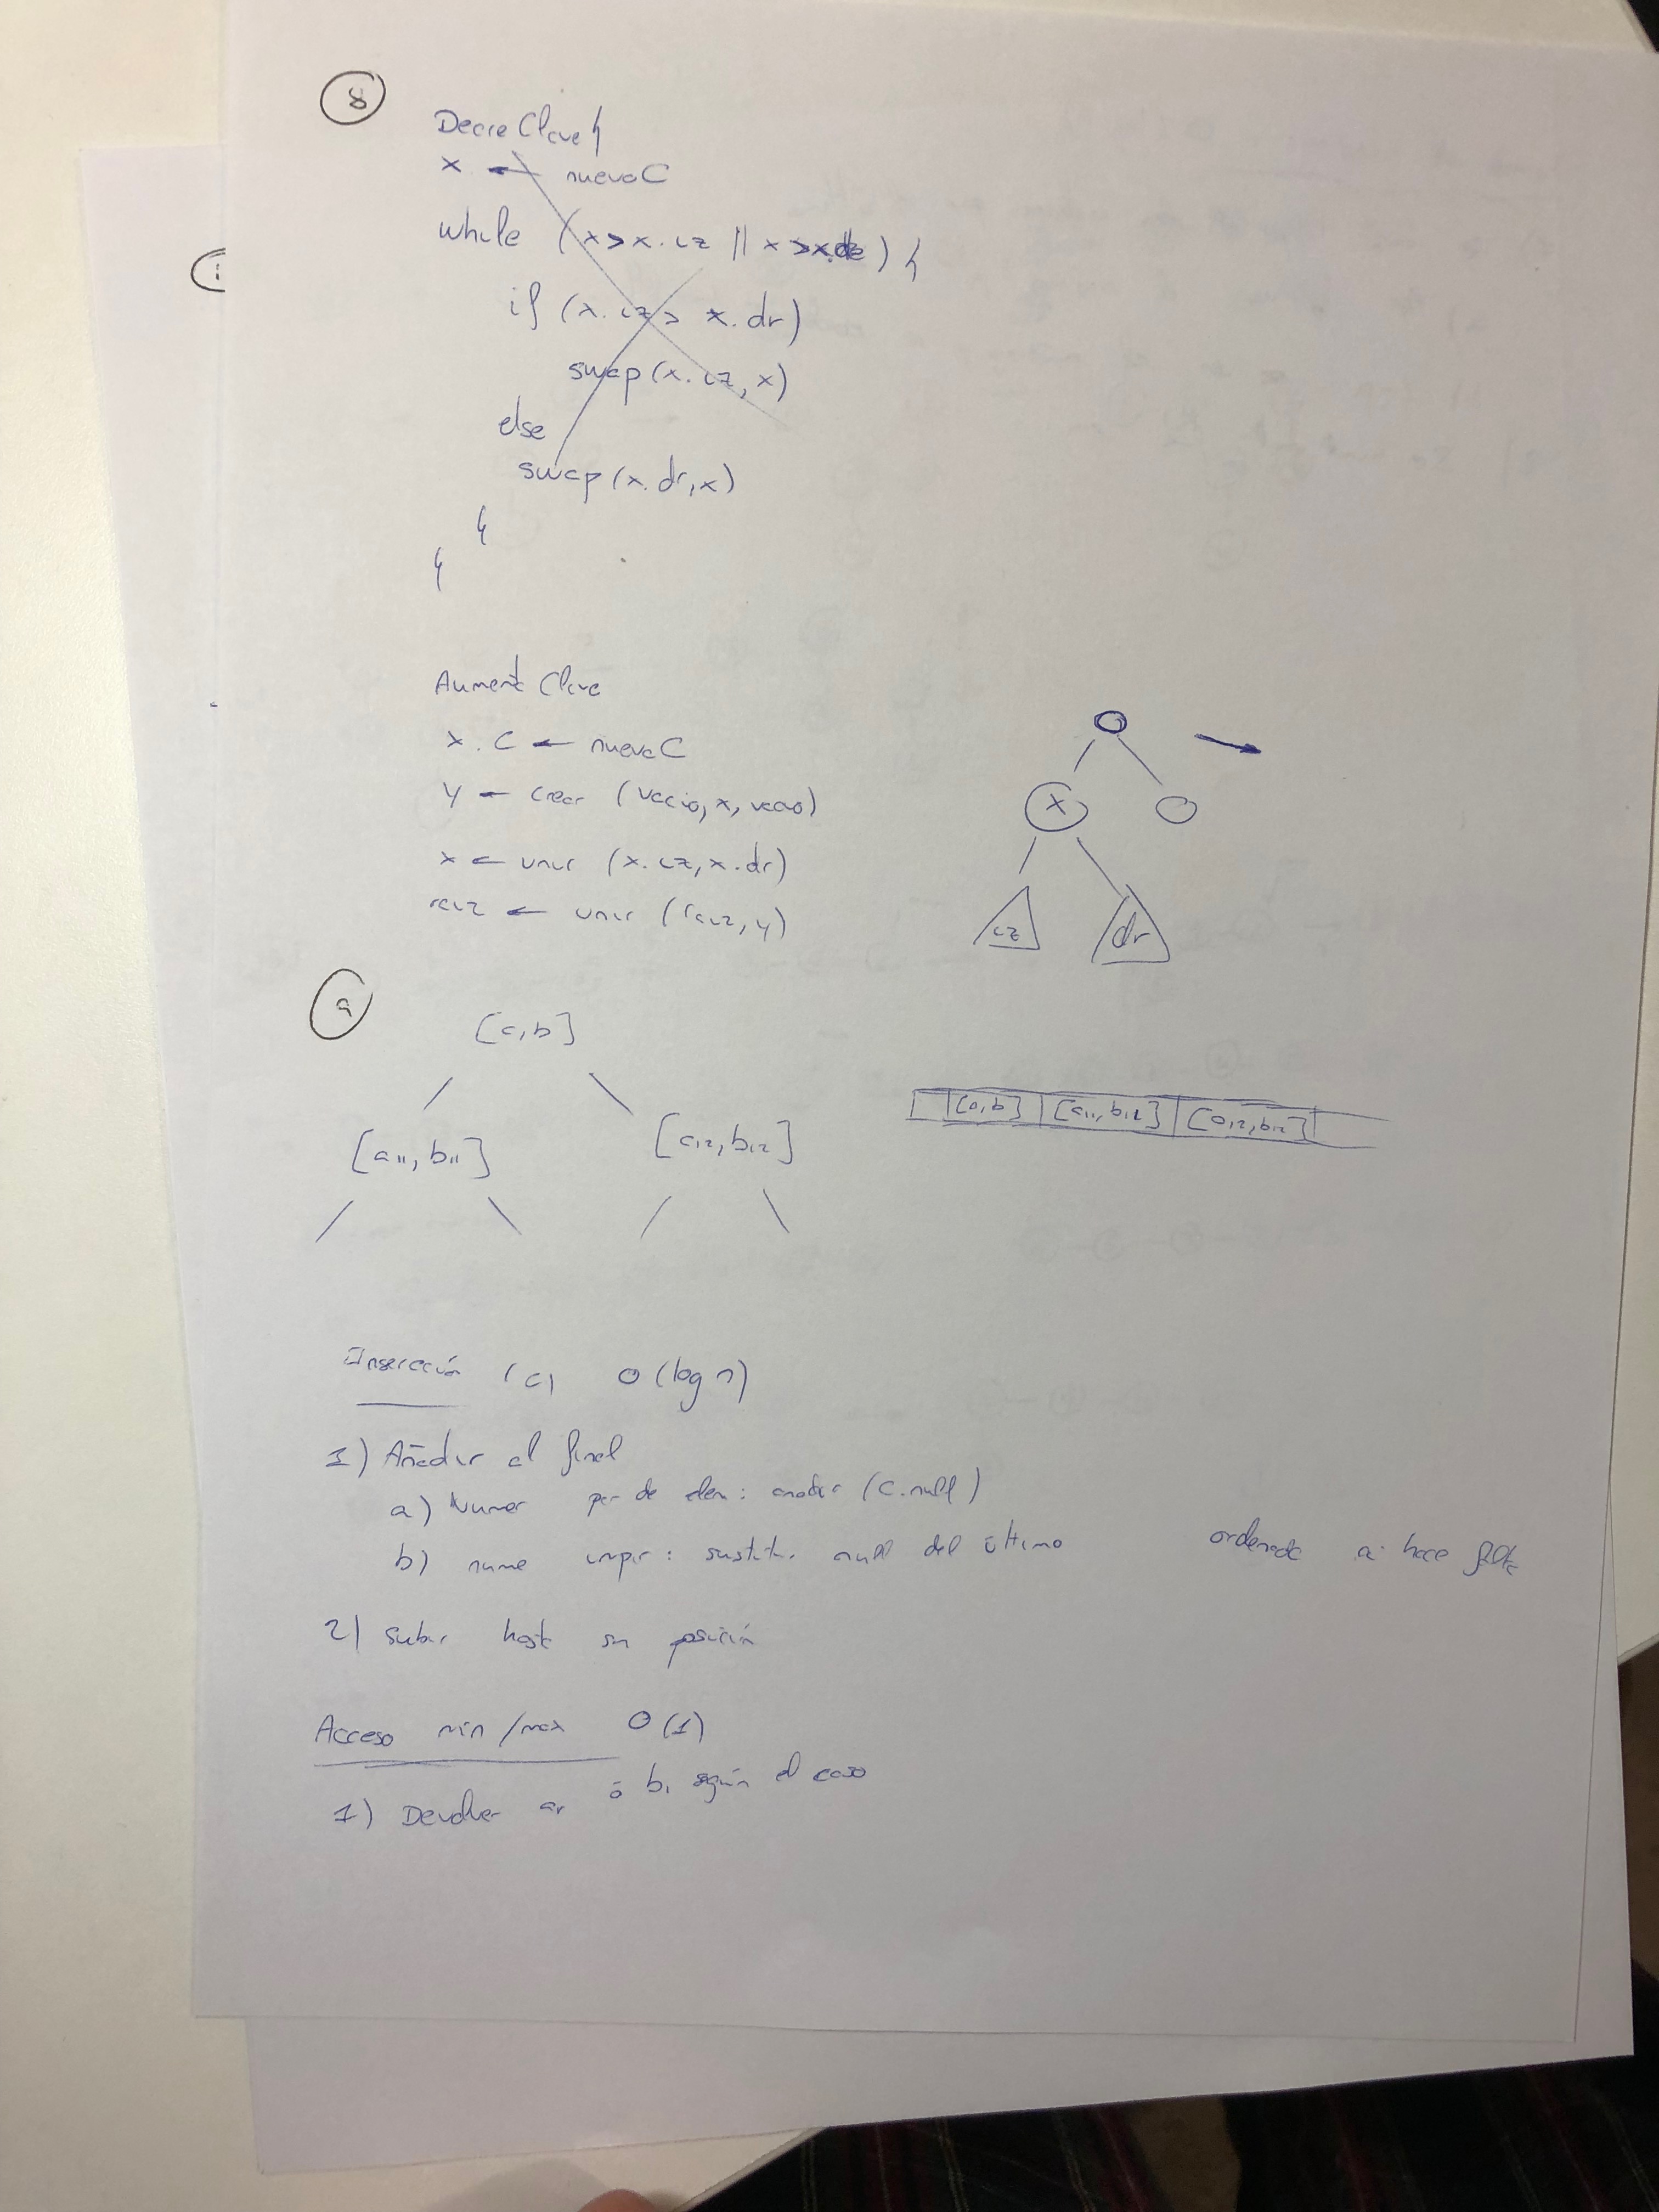 8
DecreClave {
x. ← nuevaC
while (x>x.iz || x>x.de) {
if (x.iz > x.dr)
swap(x.iz, x)
else
swap(x.dr, x)
}
}
Aument Clave
x.C ← nuevaC
y ← crear (vacio, x, vacio)
x ← unir (x.iz, x.dr)
raiz ← unir (raiz, y)
x
iz dr
9
[a,b]
[a11, b11] [a12, b12]
[a,b] [a11, b12] [a12, b12]
Inserción (c) O(log n)
1) Añadir al final
a) Numer par de elem: añadir (c.null)
b) nume impar: sustit. null del último ordenado si hace falta
2) subir hasta su posición
Acceso min/max O(1)
1) Devolver ar ó b, según el caso